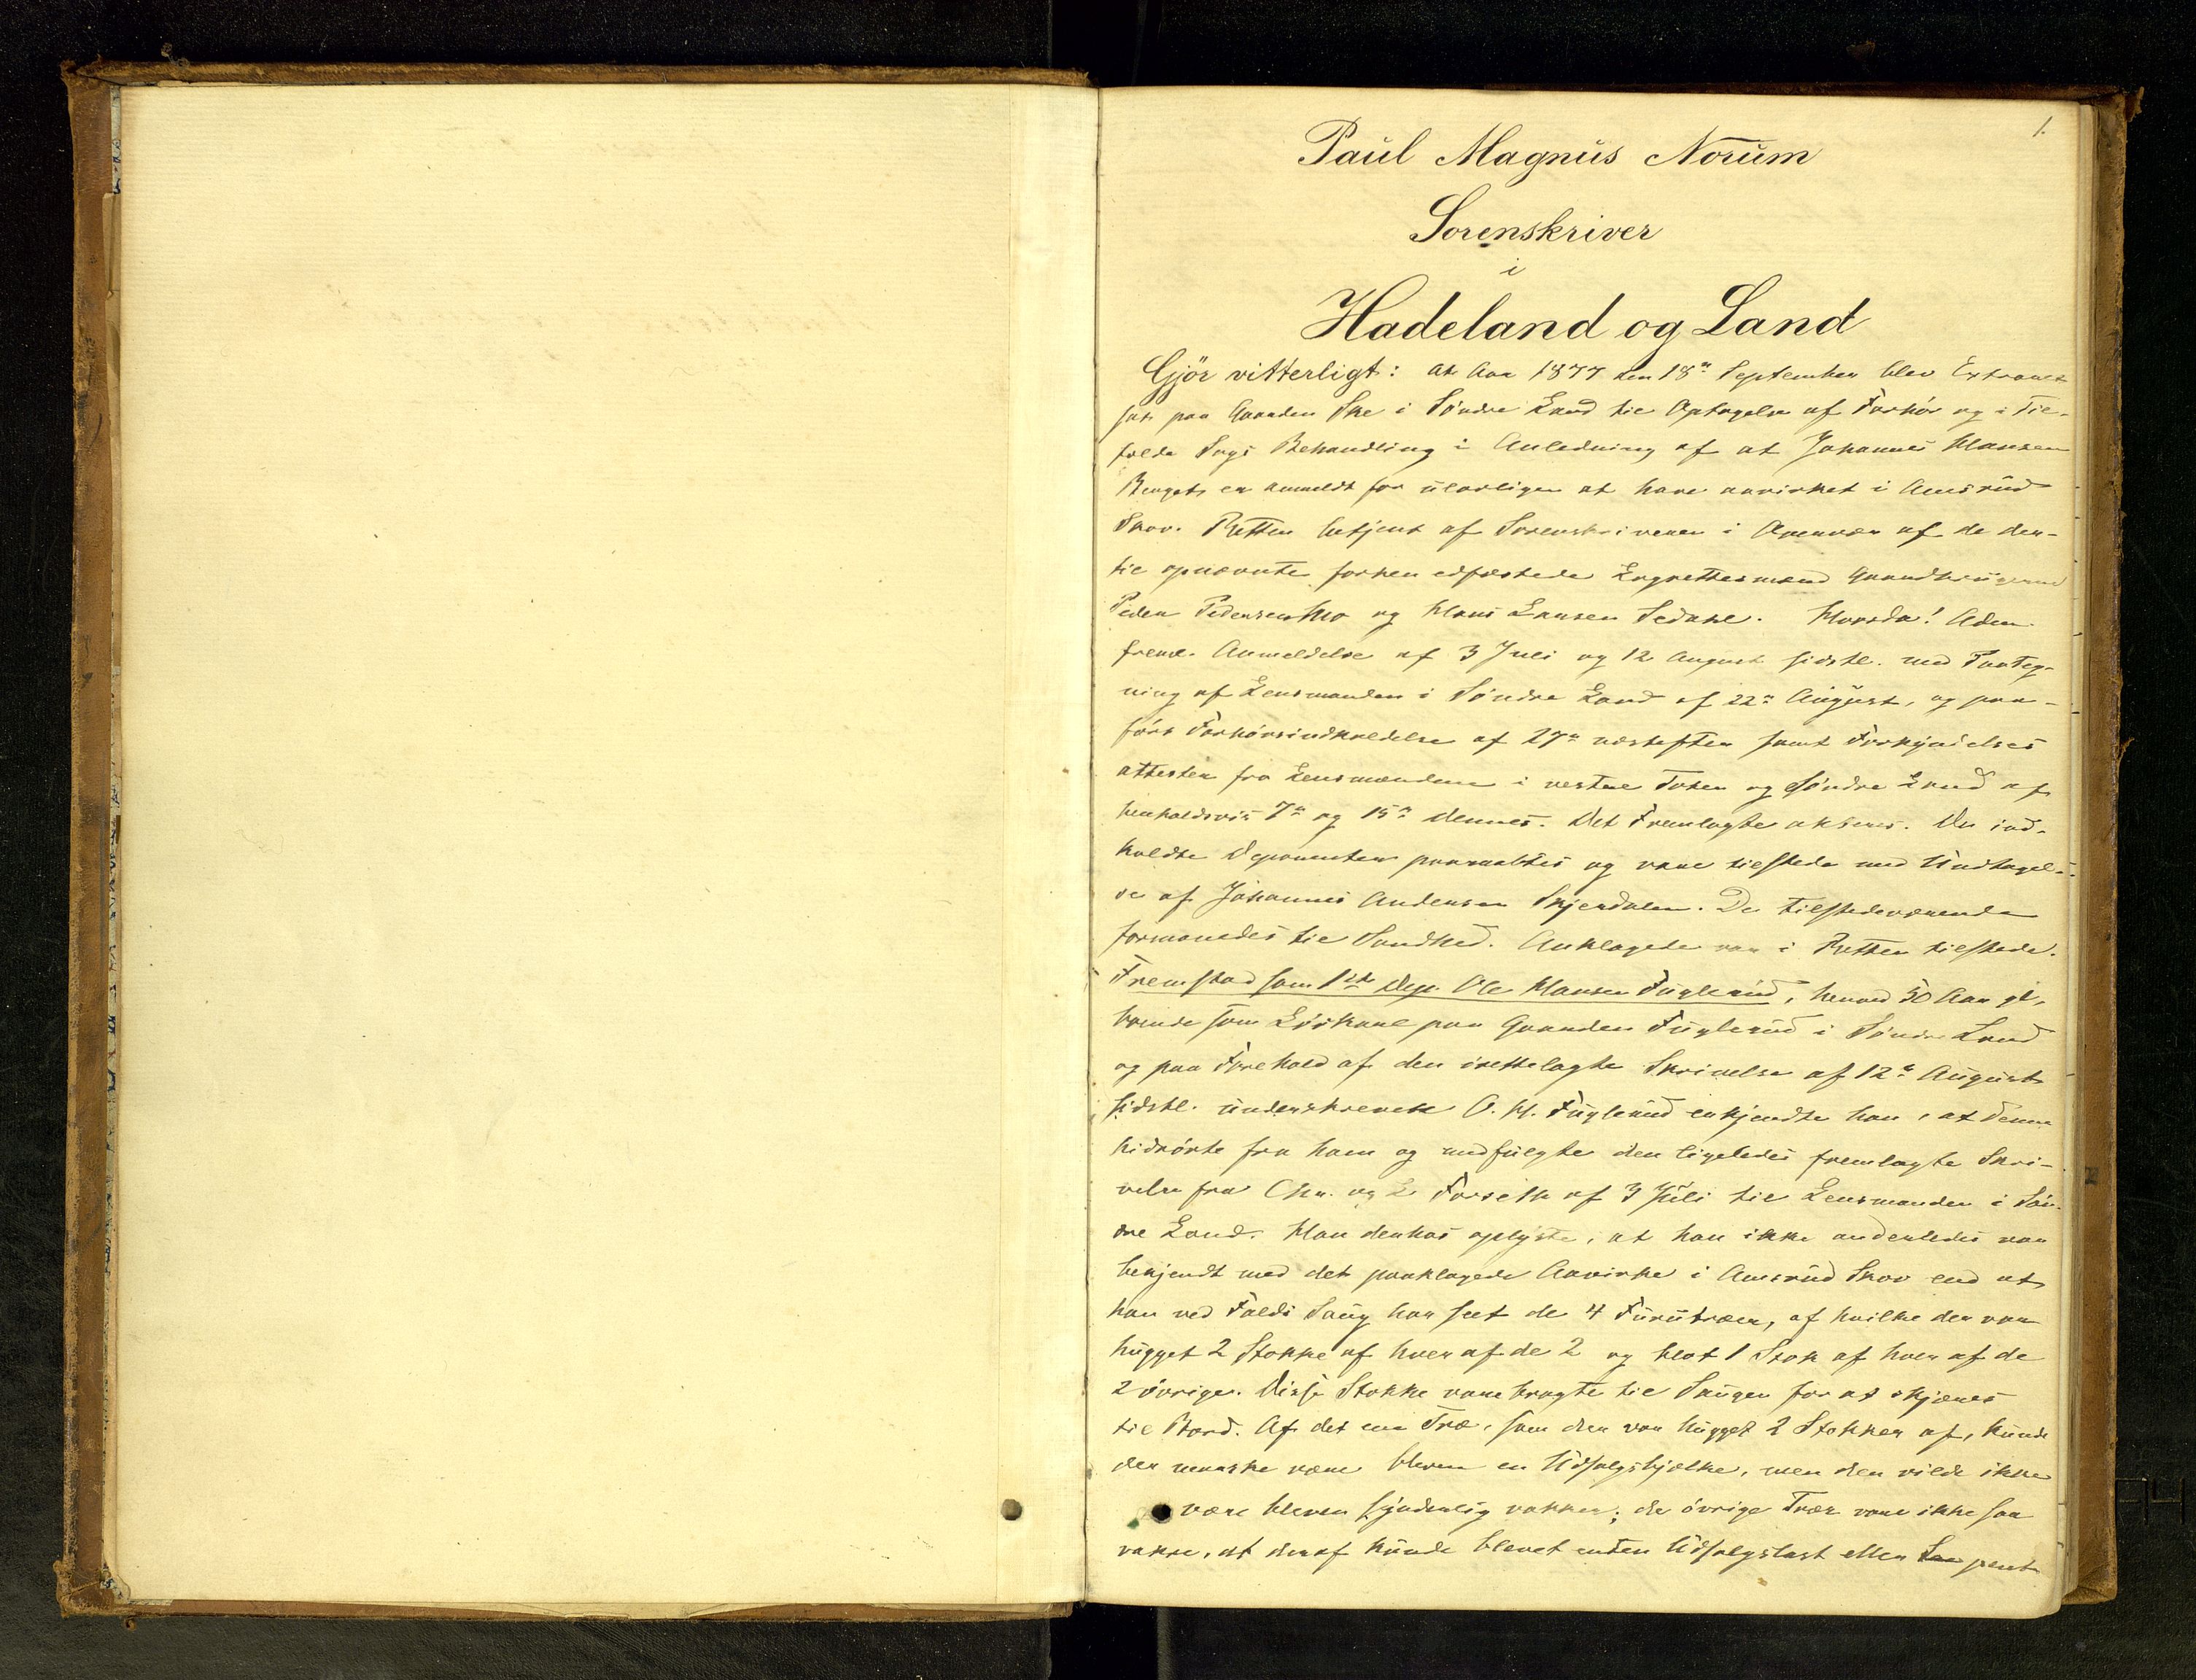 1.
Paul Magnus Norum
Sorenskriver
i
Hadeland og Land
Gjör vitterligt: at Aar 1877 den 18de September blev Extraret
sat paa Gaarden Ske i Söndre Land til Optagelse af Forhör og i Til-
fælde Sags Behandling i Anledning af at Johannes Hansen
er anmeldt for ulovligen at have avirket i Amsrud
Skov. Retten betjent af Sorenskriveren i Overvær af de der-
til opnævnte forhen edfæstede Lagrettesmænd Gaardbrugerne
Peder Pedersen Mo og Hans Larsen Sedahl. Hvorda! Adm.
freml. Anmeldelse af 3 Juli og 12 August sidstl. med Paateg-
ning af Lensmanden i Söndre Land af 22de August, og paa-
fört Forhörsindkaldelse af 27de næstefter samt Forkyndelses
attester fra Lensmændene i vestre Toten og Söndre Land af
henholdsvis 7de og 15de dennes. Det Fremlagte aktvis. De ind-
kaldte Deponenter paaraabtes og vare tilstede med Undtagel-
se af Johannes Andersen Skjerdalen. De tilstedeværende
formanedes til Sandhed. Anklagede var i Retten tilstede.
Fremstod som 1ste Dep. Ole Hansen Fuglerud, henved 50 Aar gl.
boende som Löskarl paa Gaarden Fuglerud i Söndre Land
og paa Forehold af den irettelagte Skrivelse af 12te August
sidstl. underskrevet O. H. Fuglerud erkjendte han, at denne
hidrörte fra ham og medfulgte den ligeledes fremlagte Skri-
velse fra Chr. og L Forseth af 3 Juli til Lensmanden i Sön-
dre Land. Han derhos oplyste, at han ikke anderledes var
bekjendt med det paaklagede Aavirke i Amsrud Skov end at
han ved Falds Saug har seet de 4 Furutræer, af hvilke der var
hugget 2 Stokke af hver af de 2 og blot 1 Stok af hver af de
2 övrige. Disse Stokke vare bragte til Saugen for at skjæres
til Bord. Af det ene Træ, som der var hugget 2 Stokker af, kunde
der kanske være bleven en Udsalgsbjelke, men den vilde ikke
være bleven synderlig vakker; de övrige Trær vare ikke saa
vakre, at deraf kunde blevet enten Udsalgslast eller pent